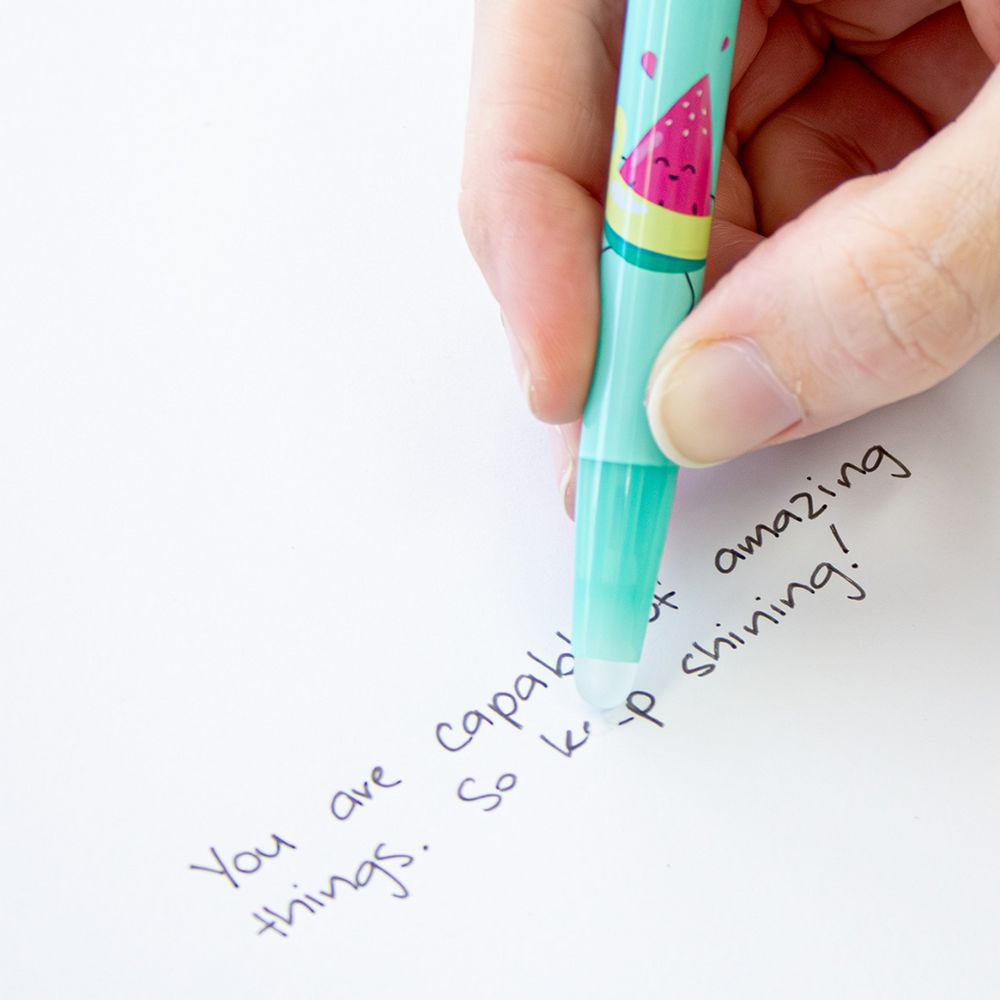 You are capable of amazing
things. So keep shining!